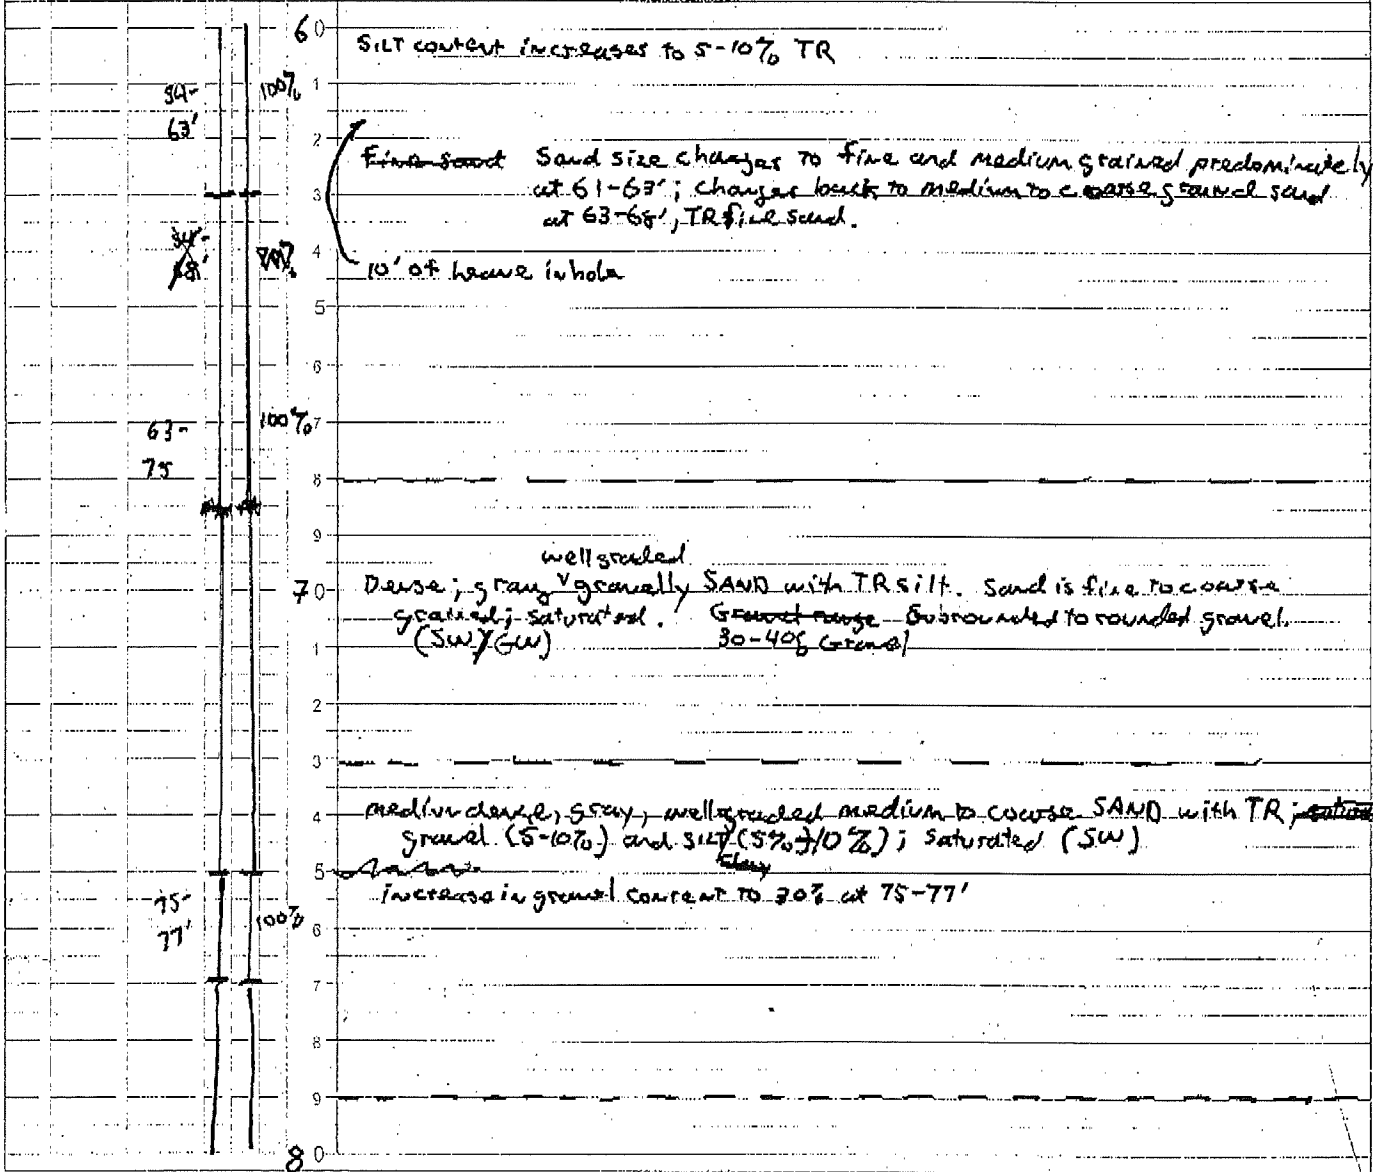 60
SILT content increases to 5-10% TR
54-
63'
100%
1
2
Fine sand Sand size changes to fine and medium grained predominately
at 61-63'; changes back to medium to coarse grained sand
at 63-68', TR fine sand.
3
4
10' of heave in hole
5
6
63-
75
100%
7
8
9
well graded
70
Dense; gray gravelly SAND with TR silt. Sand is fine to coarse
grained; saturated. Gravel range Subrounded to rounded gravel.
(SW)/(GW) 30-40% Gravel
1
2
3
4
medium dense, gray, well graded medium to coarse SAND with TR;
gravel (5-10%) and SILT (5%-10%); saturated (SW)
Clay
5
increase in gravel content to 30% at 75-77'
75-
77'
100%
6
7
8
9
80